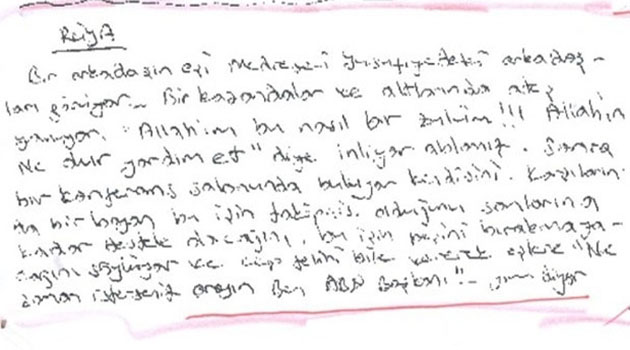 RüyA
Bir arkadaşın eşi Medresei Yusufiyedeki arkadaş-
ları görüyor... Bir kazandalar ve altlarında ateş
yanıyor. "Allahım bu nasıl bir zulüm!!! Allahım
Ne olur yardım et" diye inliyor ablamız. Sonra
bir konferans salonunda buluyor kendisini. Karşıların-
da bir bayan bu işin takipçisi olduğunu sonlarına
kadar destek olacağını, bu işin peşini bırakmaya-
cağını söylüyor ve cep telini bile vererek "Ne
zaman isterseniz arayın Ben ABD Başkanı"... yım diyor